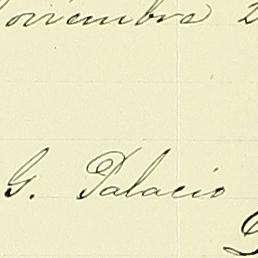 Noviembre 2
G. Palacio